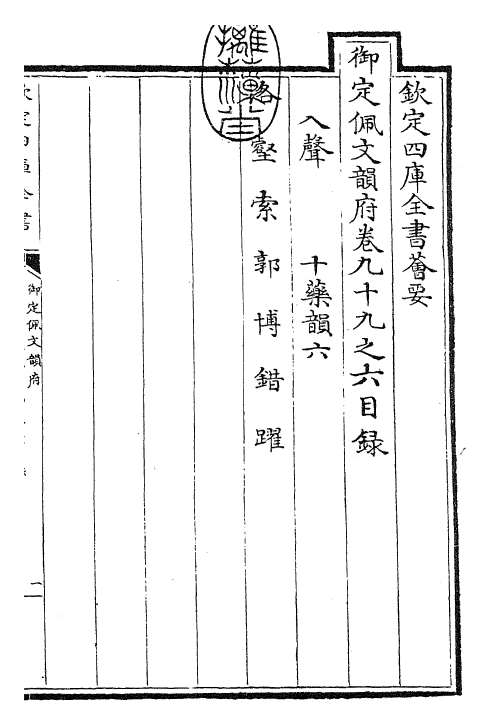 欽定四庫全書薈要
御定佩文韻府卷九十九之六目録
入聲 十藥韻六
壑 索 郭 博 錯 躍
欽定四庫全書
御定佩文韻府